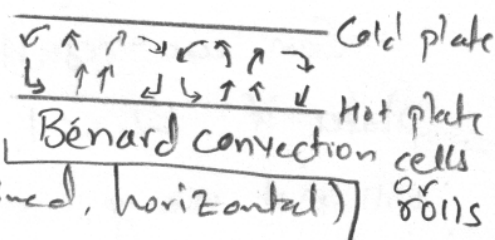 Cold plate
Hot plate
Bénard convection cells
or
rolls
horizontal)